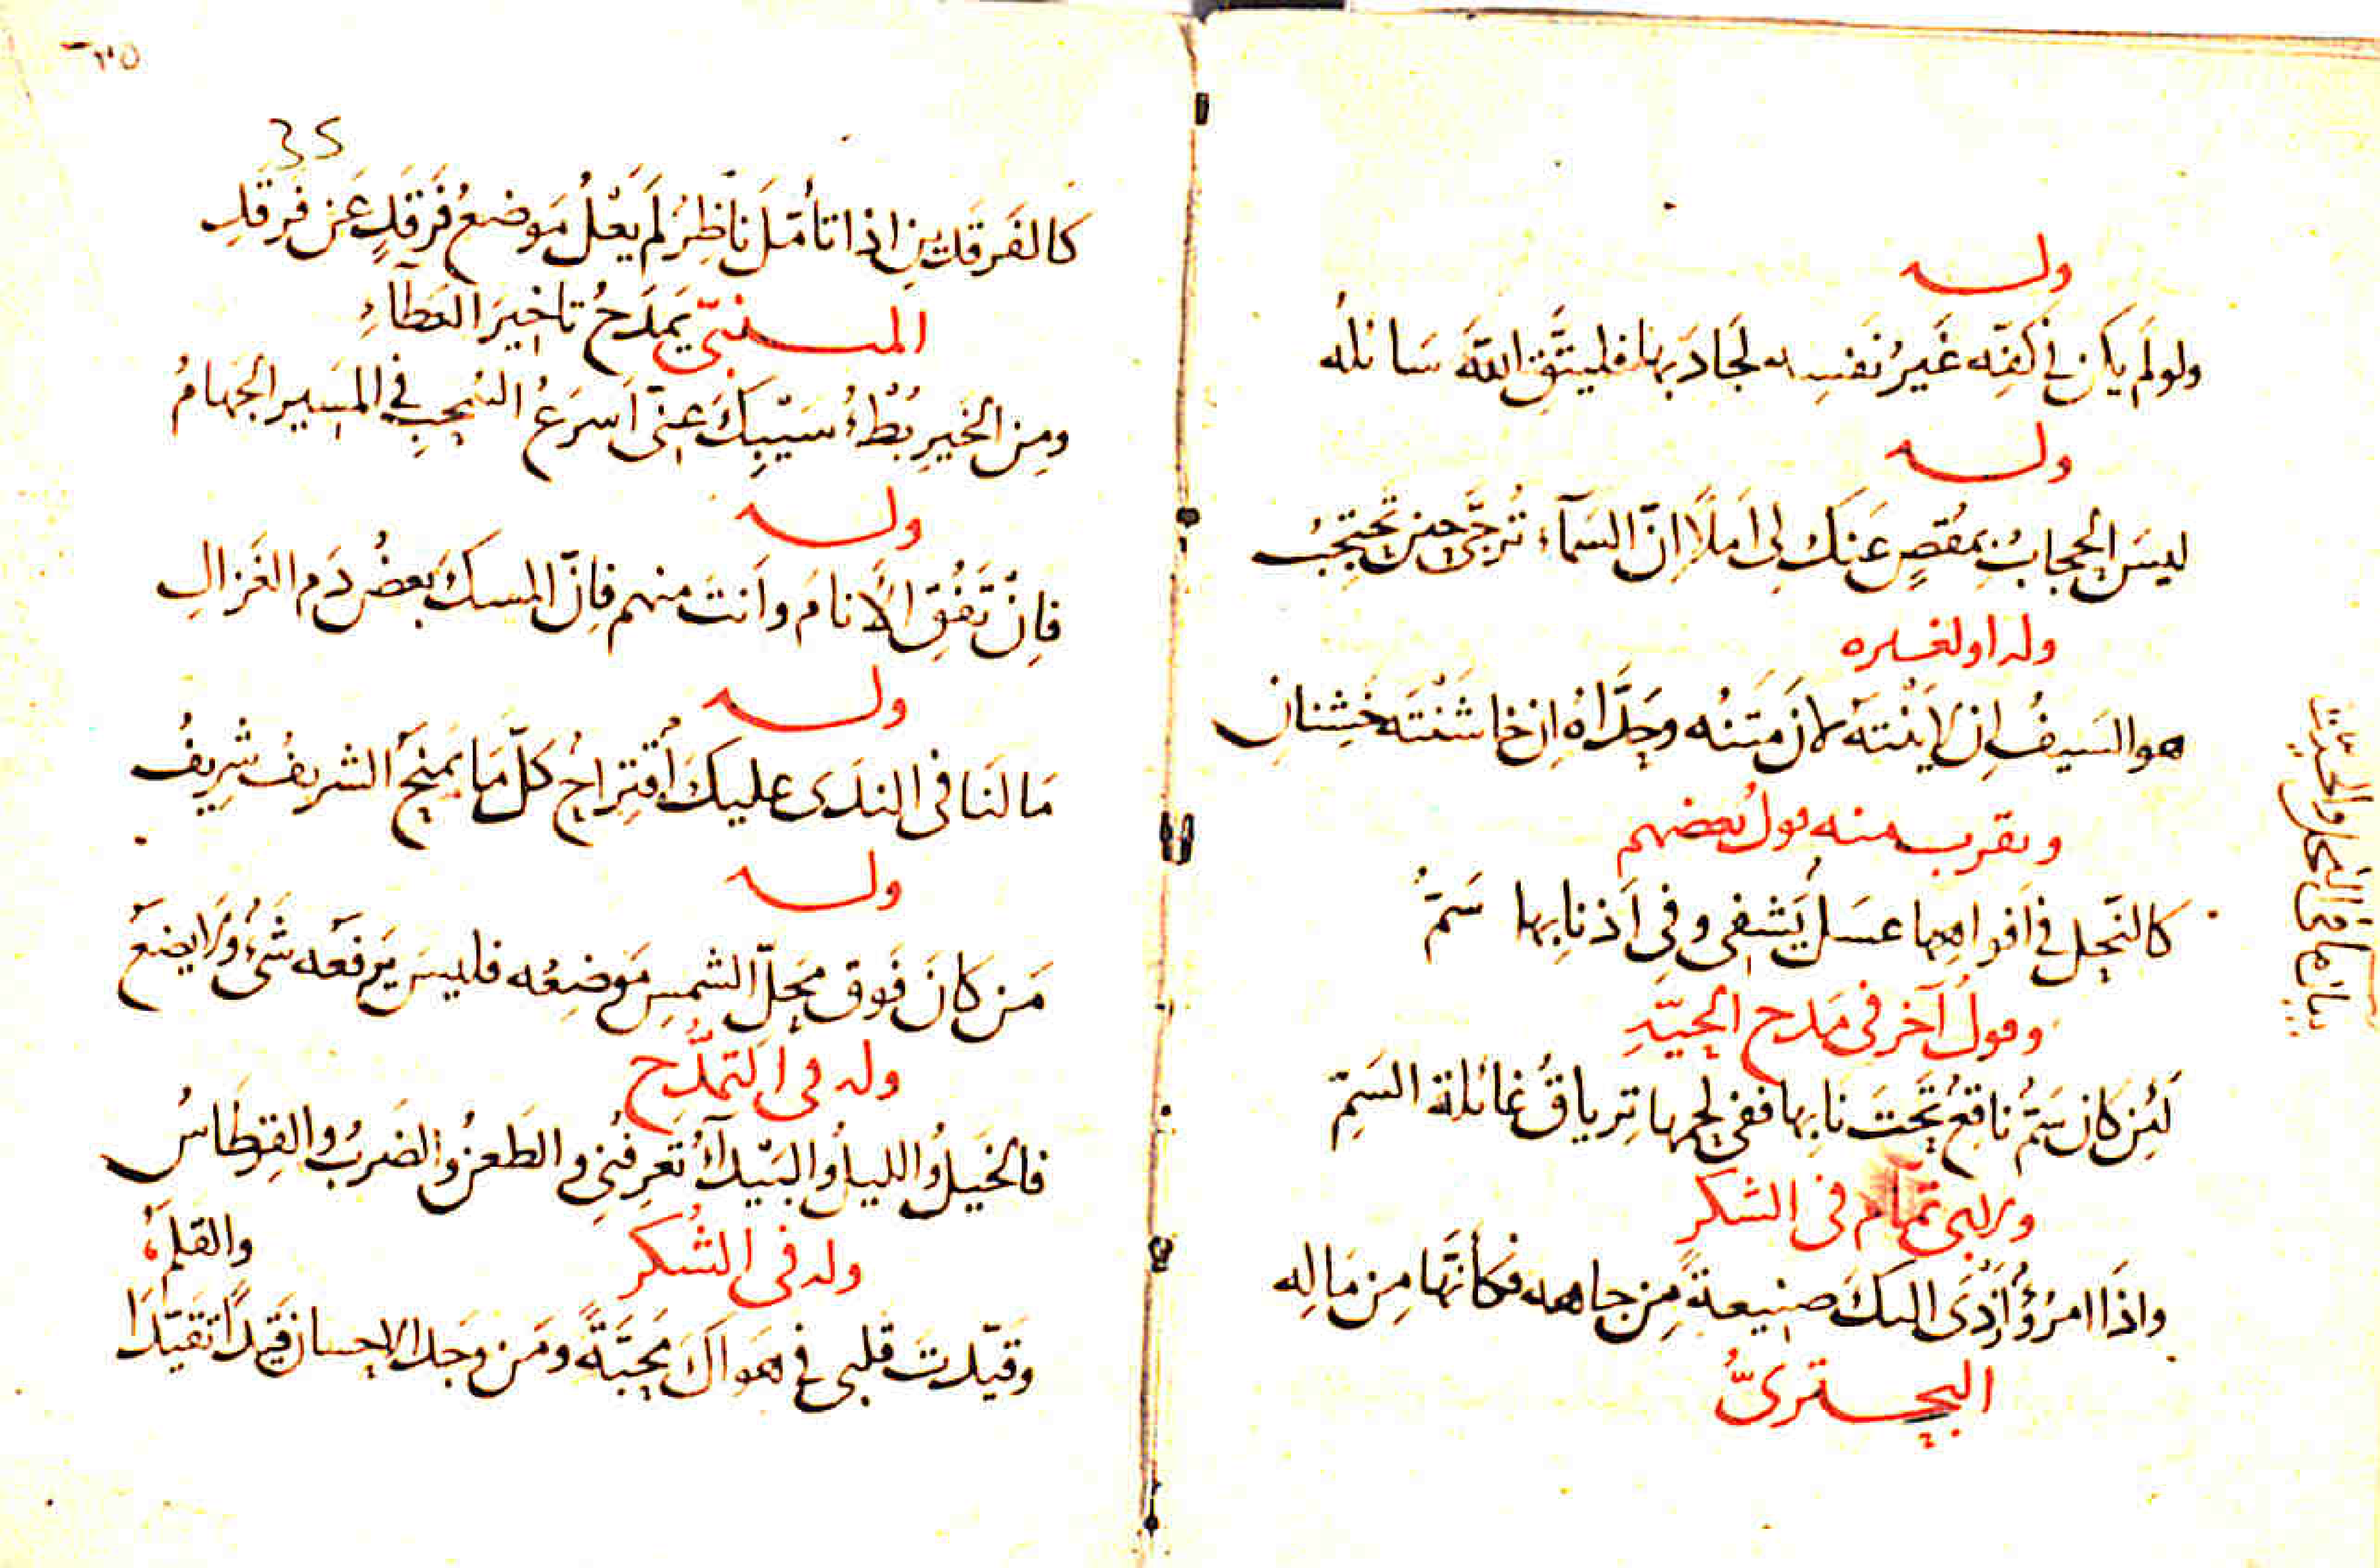 وله
ولو لَم يَكن في كَفّه غَيرُ نَفسِه لَجَادَ بها فليتَّقِ اللهَ سَائلُه
وله
ليسَ الحِجابُ بمُقصٍ عَنكَ لى اَملًا اِنّ السَمآءَ تُرَجَّى حين تَحتَجبُ
وله او لغيره
هو السَيفُ اِن لايَنْتَه لانَ مَتنُه وحَدَّاهُ اِن خاشَنْتَه خَشِنانِ
ويقرب منه قول بعضهم
كالنَحل في اَفواهِها عسَلٌ يَشفى وفى اَذنابِها سَمُّ
وقول آخر فى مَدح الحيّةِ
لَئِن كان سَمٌّ ناقعٌ تَحتَ نَابِها ففى لحمِها تِرياقُ غائلة السَمِّ
ولابى تمام فى الشكر
واذَا امرُؤٌ اَسْدَى اليكَ صنيعةً مِن جاهه فكَأنَّها مِن مَالِه
البحتريّ
بيانها فى النحل والحيّة
٣٥
35
كالفَرقَدَينِ اذا تأمّلَ نَاظِرٌ لَم يَعْلُ مَوضعُ فَرقَدٍ عَن فَرقَدِ
المتنبّى يَمدَحُ تاخيرَ العَطآءِ
ومِن الخَيرِ بُطْءُ سَيْبِكَ عنّى اَسرَعُ السُحبِ في المَسيرِ الجَهامُ
وله
فاِنْ تَفُقِ الاَنامَ واَنتَ منهم فاِنّ المسكَ بَعضُ دَم الغَزالِ
وله
مَا لنَا فى الندَى عليكَ اقتِراحٌ كلّ مَا يَمنحُ الشريفُ شرِيفُ
وله
مَن كانَ فَوق مَحلّ الشمسِ مَوضِعُه فليسَ يَرفَعُه شَىءٌ ولَا يضَعُ
وله فى التَمدُّح
فالخَيلُ والليلُ والبَيْدآءُ تَعرِفُنِى والطَعنُ والضَربُ والقِرطَاسُ
والقلَمُ
وله فى الشُكر
وقَيّدتَ قلبى فى هَواكَ مَحَبَّةً ومَن وجَد الاِحسانَ قَيدًا تَقَيّدَا